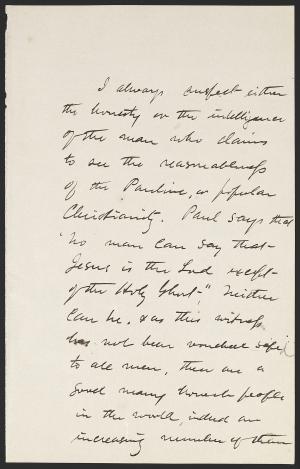 I always suspect either
the honesty or the intelligence
of the man who claims
to see the reasonableness
of the Pauline, or popular
Christianity. Paul says that
"no man can say that
Jesus is the Lord except
of the Holy Ghost," neither
can he, & as this witness
has not been vouchsafed
to all men, there are a
good many honest people
in the world, indeed an
increasing number of them